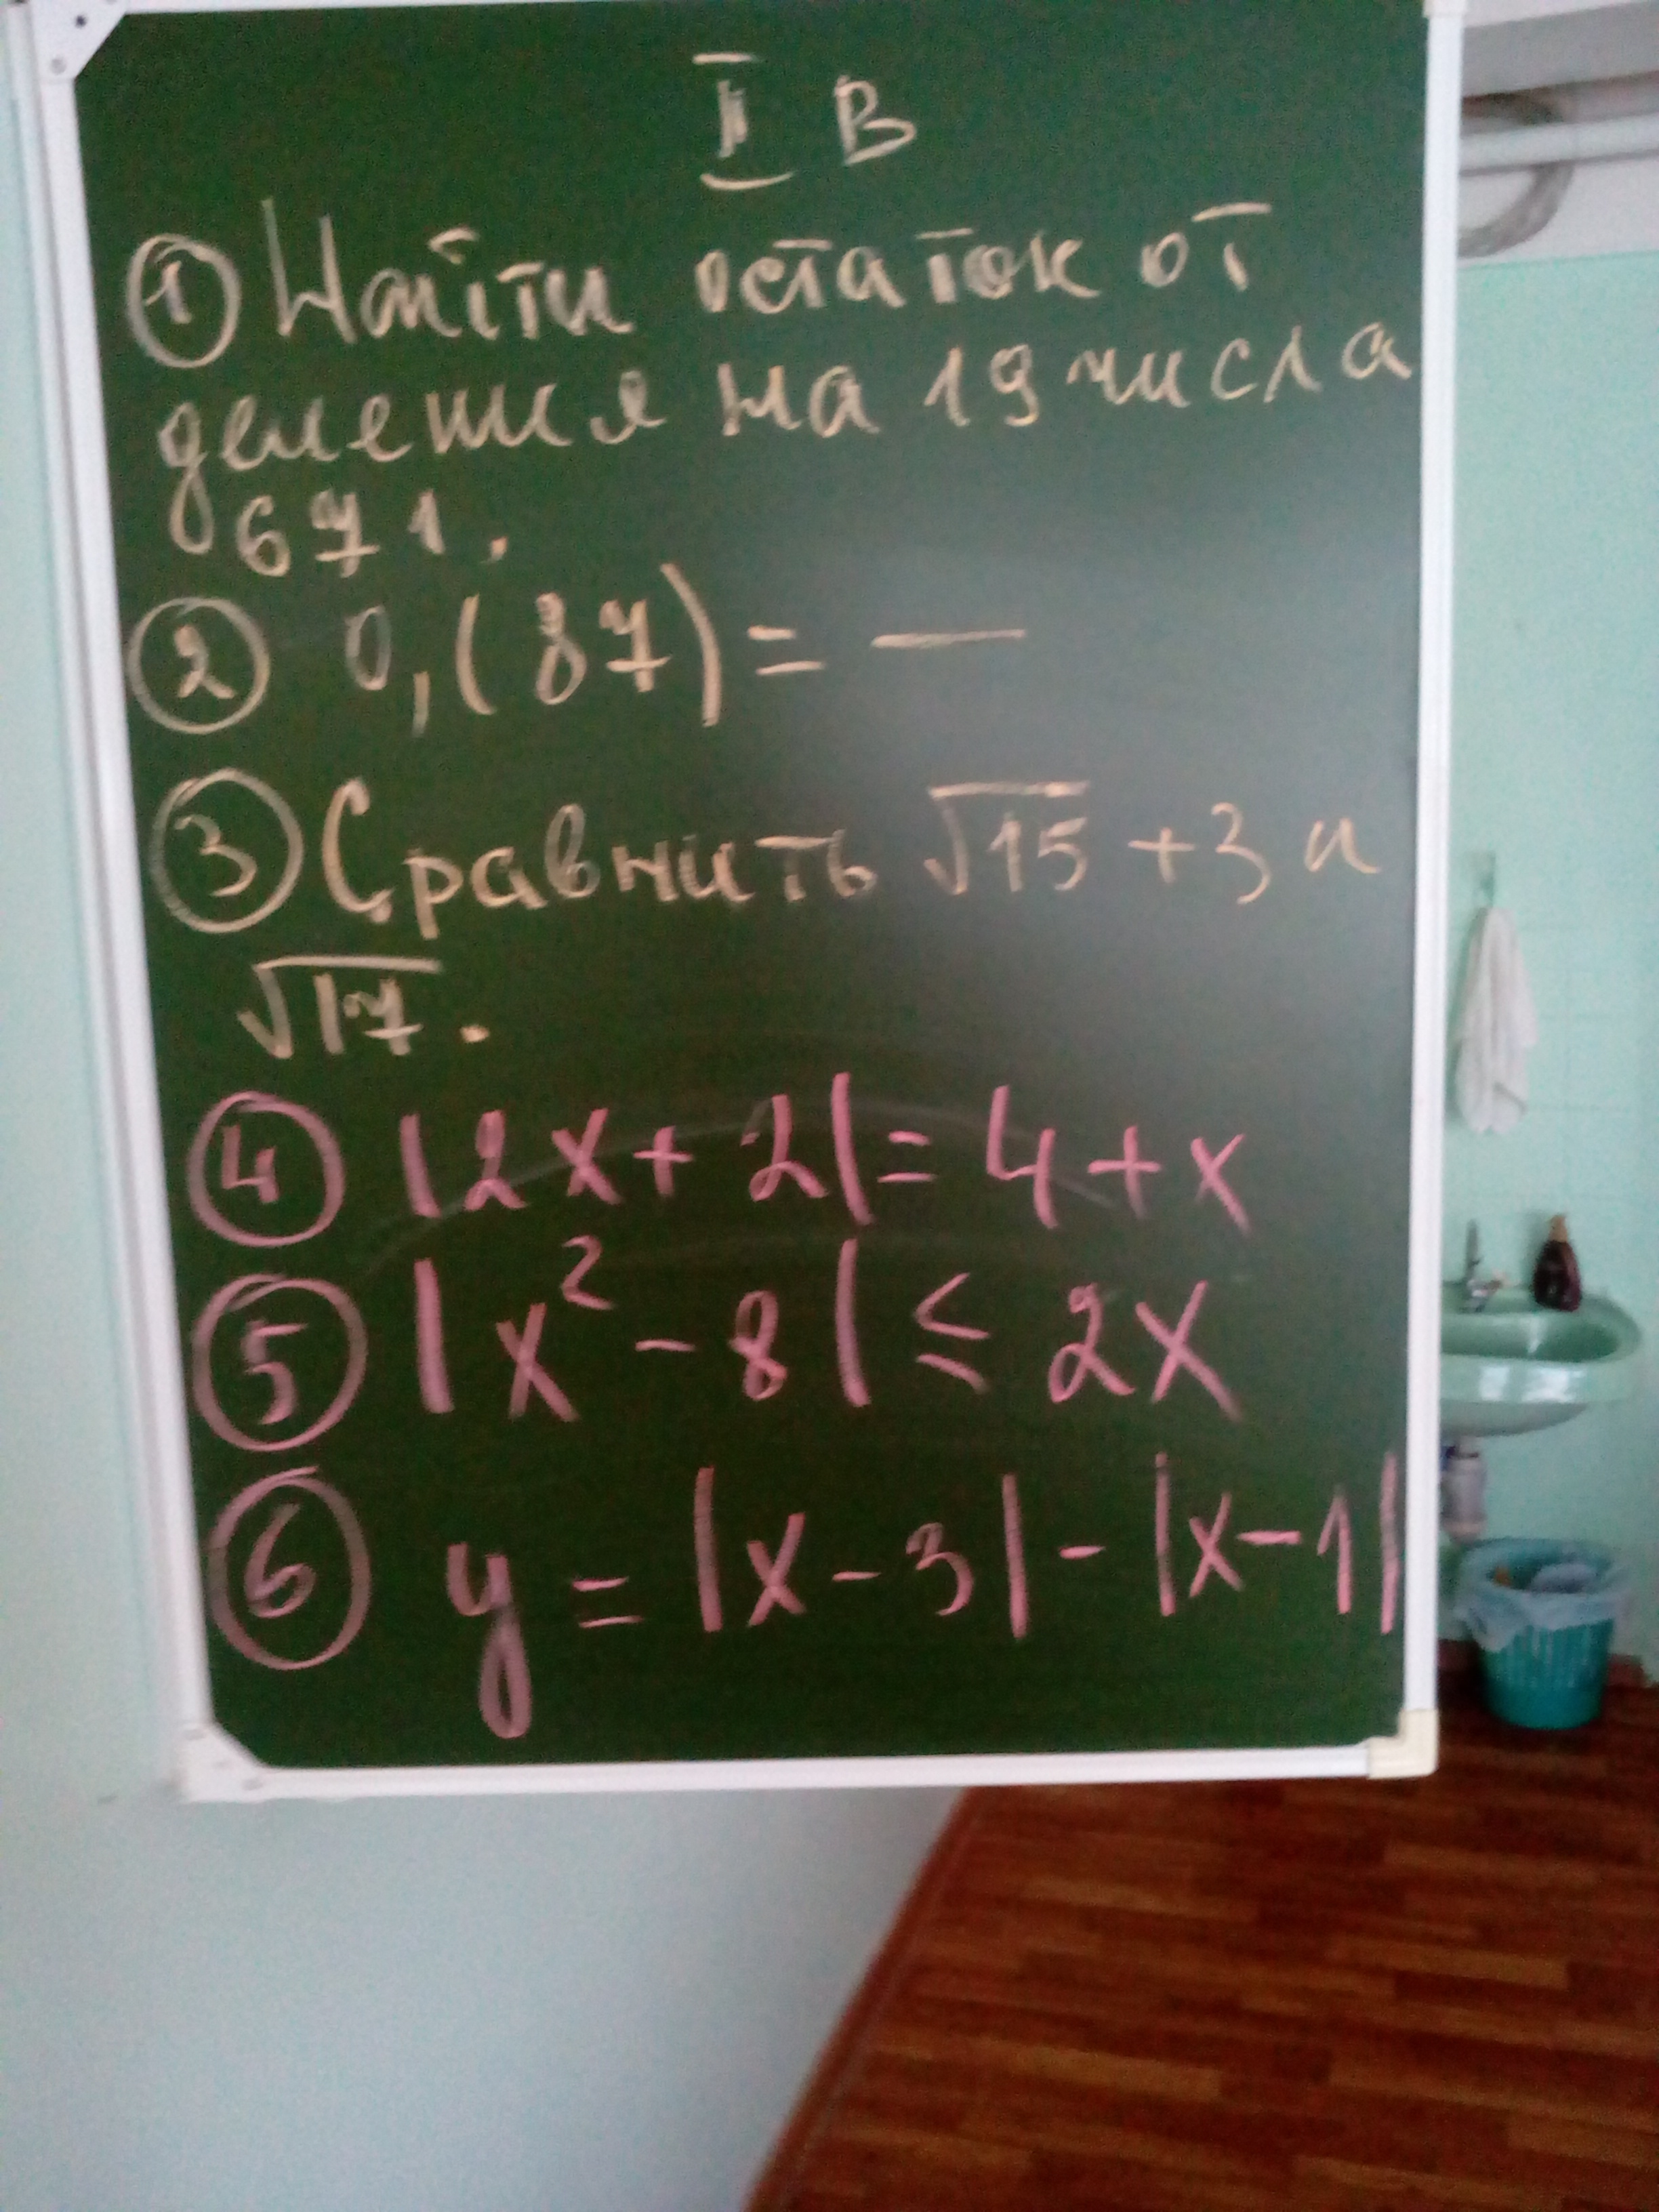 I В
① Найти остаток от
деления на 19 числа
671.
② 0,(87) = —
③ Сравнить √15 + 3 и
√17.
④ |2x + 2| = 4 + x
⑤ |x² - 8| ≤ 2x
⑥ y = |x - 3| - |x - 1|